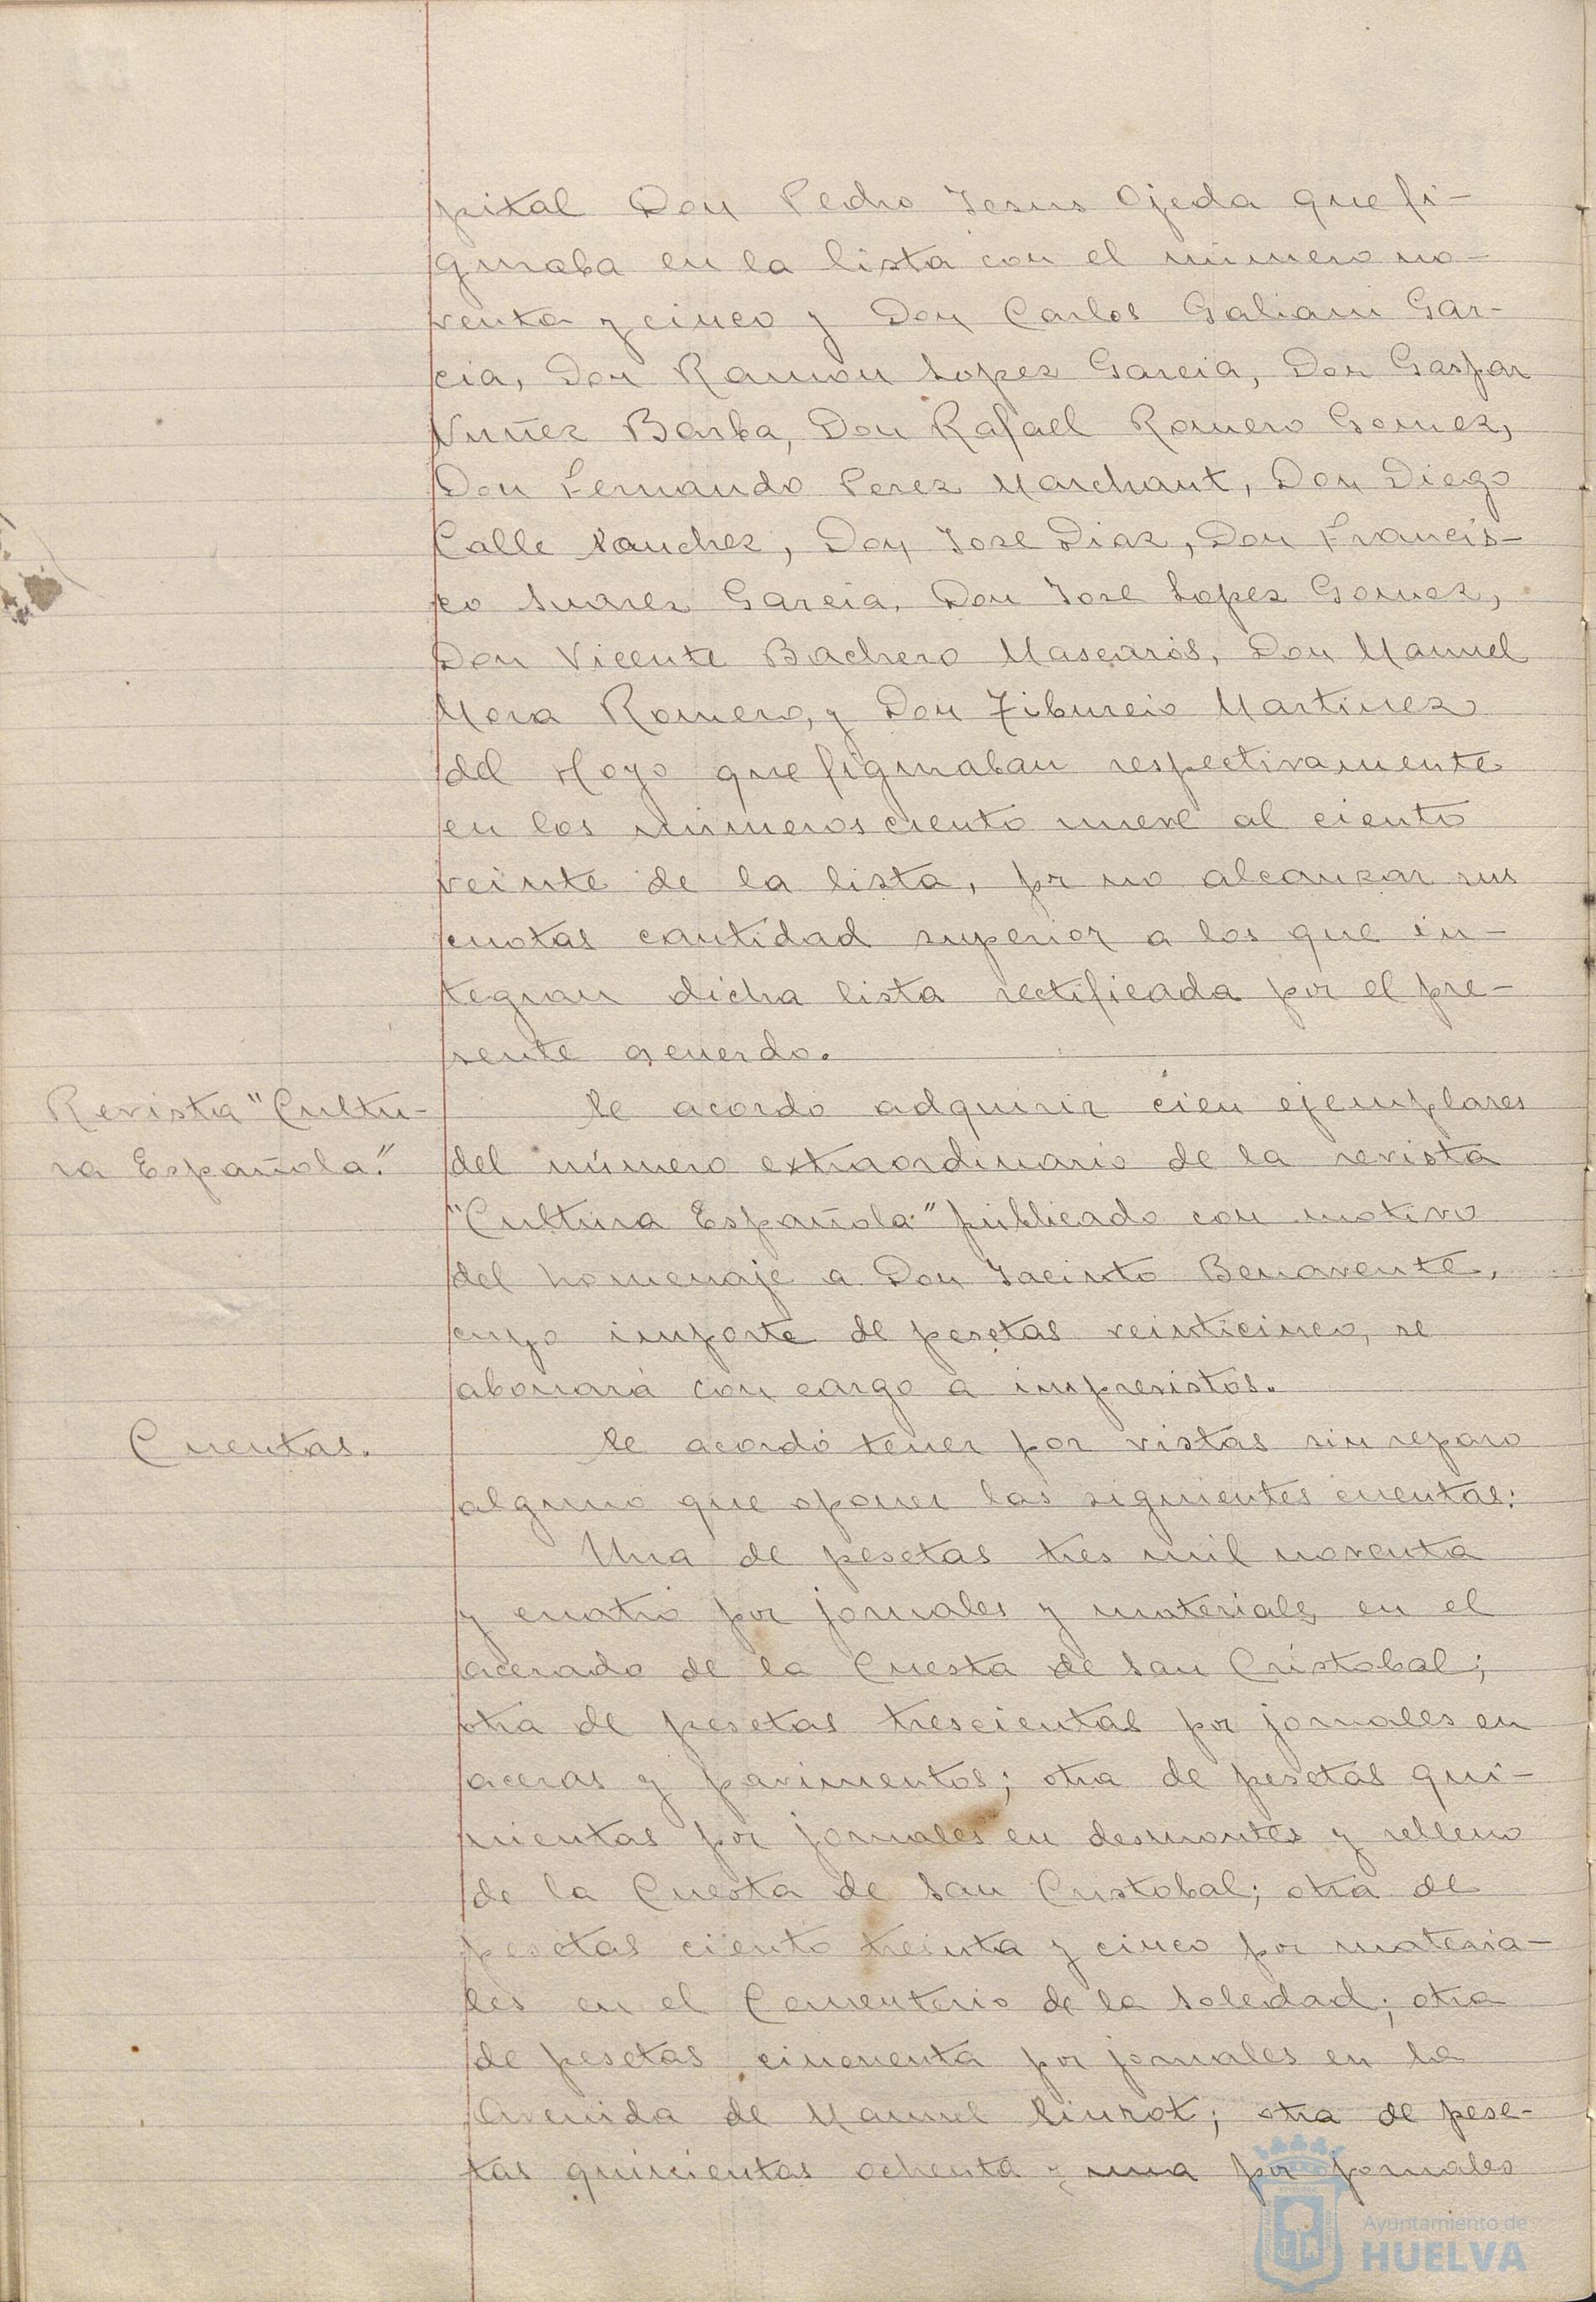 pital Don Pedro Jesus Ojeda que fi-
guraba en la lista con el número no-
venta y cinco y Don Carlos Galiani Gar-
cia, Don Ramon Lopez Garcia, Don Gaspar
Nuñez Barba, Don Rafael Romero Gomez,
Don Fernando Perez Marchant, Don Diego
Calle Sanchez, Don Jose Diaz, Don Francis-
co Suarez Garcia, Don Jose Lopez Gomez,
Don Vicente Bachero Mascarós, Don Manuel
Mora Romero, y Don Tiburcio Martinez
del Hoyo que figuraban respectivamente
en los números ciento nueve al ciento
veinte de la lista, por no alcanzar sus
cuotas cantidad superior a los que in-
tegran dicha lista rectificada por el pre-
sente acuerdo.
Revista "Cultu-
ra Española."
Se acordó adquirir cien ejemplares
del número extraordinario de la revista
"Cultura Española" publicado con motivo
del homenaje a Don Jacinto Benavente,
cuyo importe de pesetas veinticinco, se
abonará con cargo a imprevistos.
Cuentas.
Se acordó tener por vistas sin reparo
alguno que oponer las siguientes cuentas:
Una de pesetas tres mil noventa
y cuatro por jornales y materiales en el
acerado de la Cuesta de San Cristobal;
otra de pesetas trescientas por jornales en
aceras y pavimentos; otra de pesetas qui-
nientas por jornales en desmontes y relleno
de la Cuesta de San Cristobal; otra de
pesetas ciento treinta y cinco por materia-
les en el Cementerio de la Soledad; otra
de pesetas cincuenta por jornales en la
Avenida de Manuel Siurot; otra de pese-
tas quinientas ochenta y una por jornales
Ayuntamiento de
HUELVA